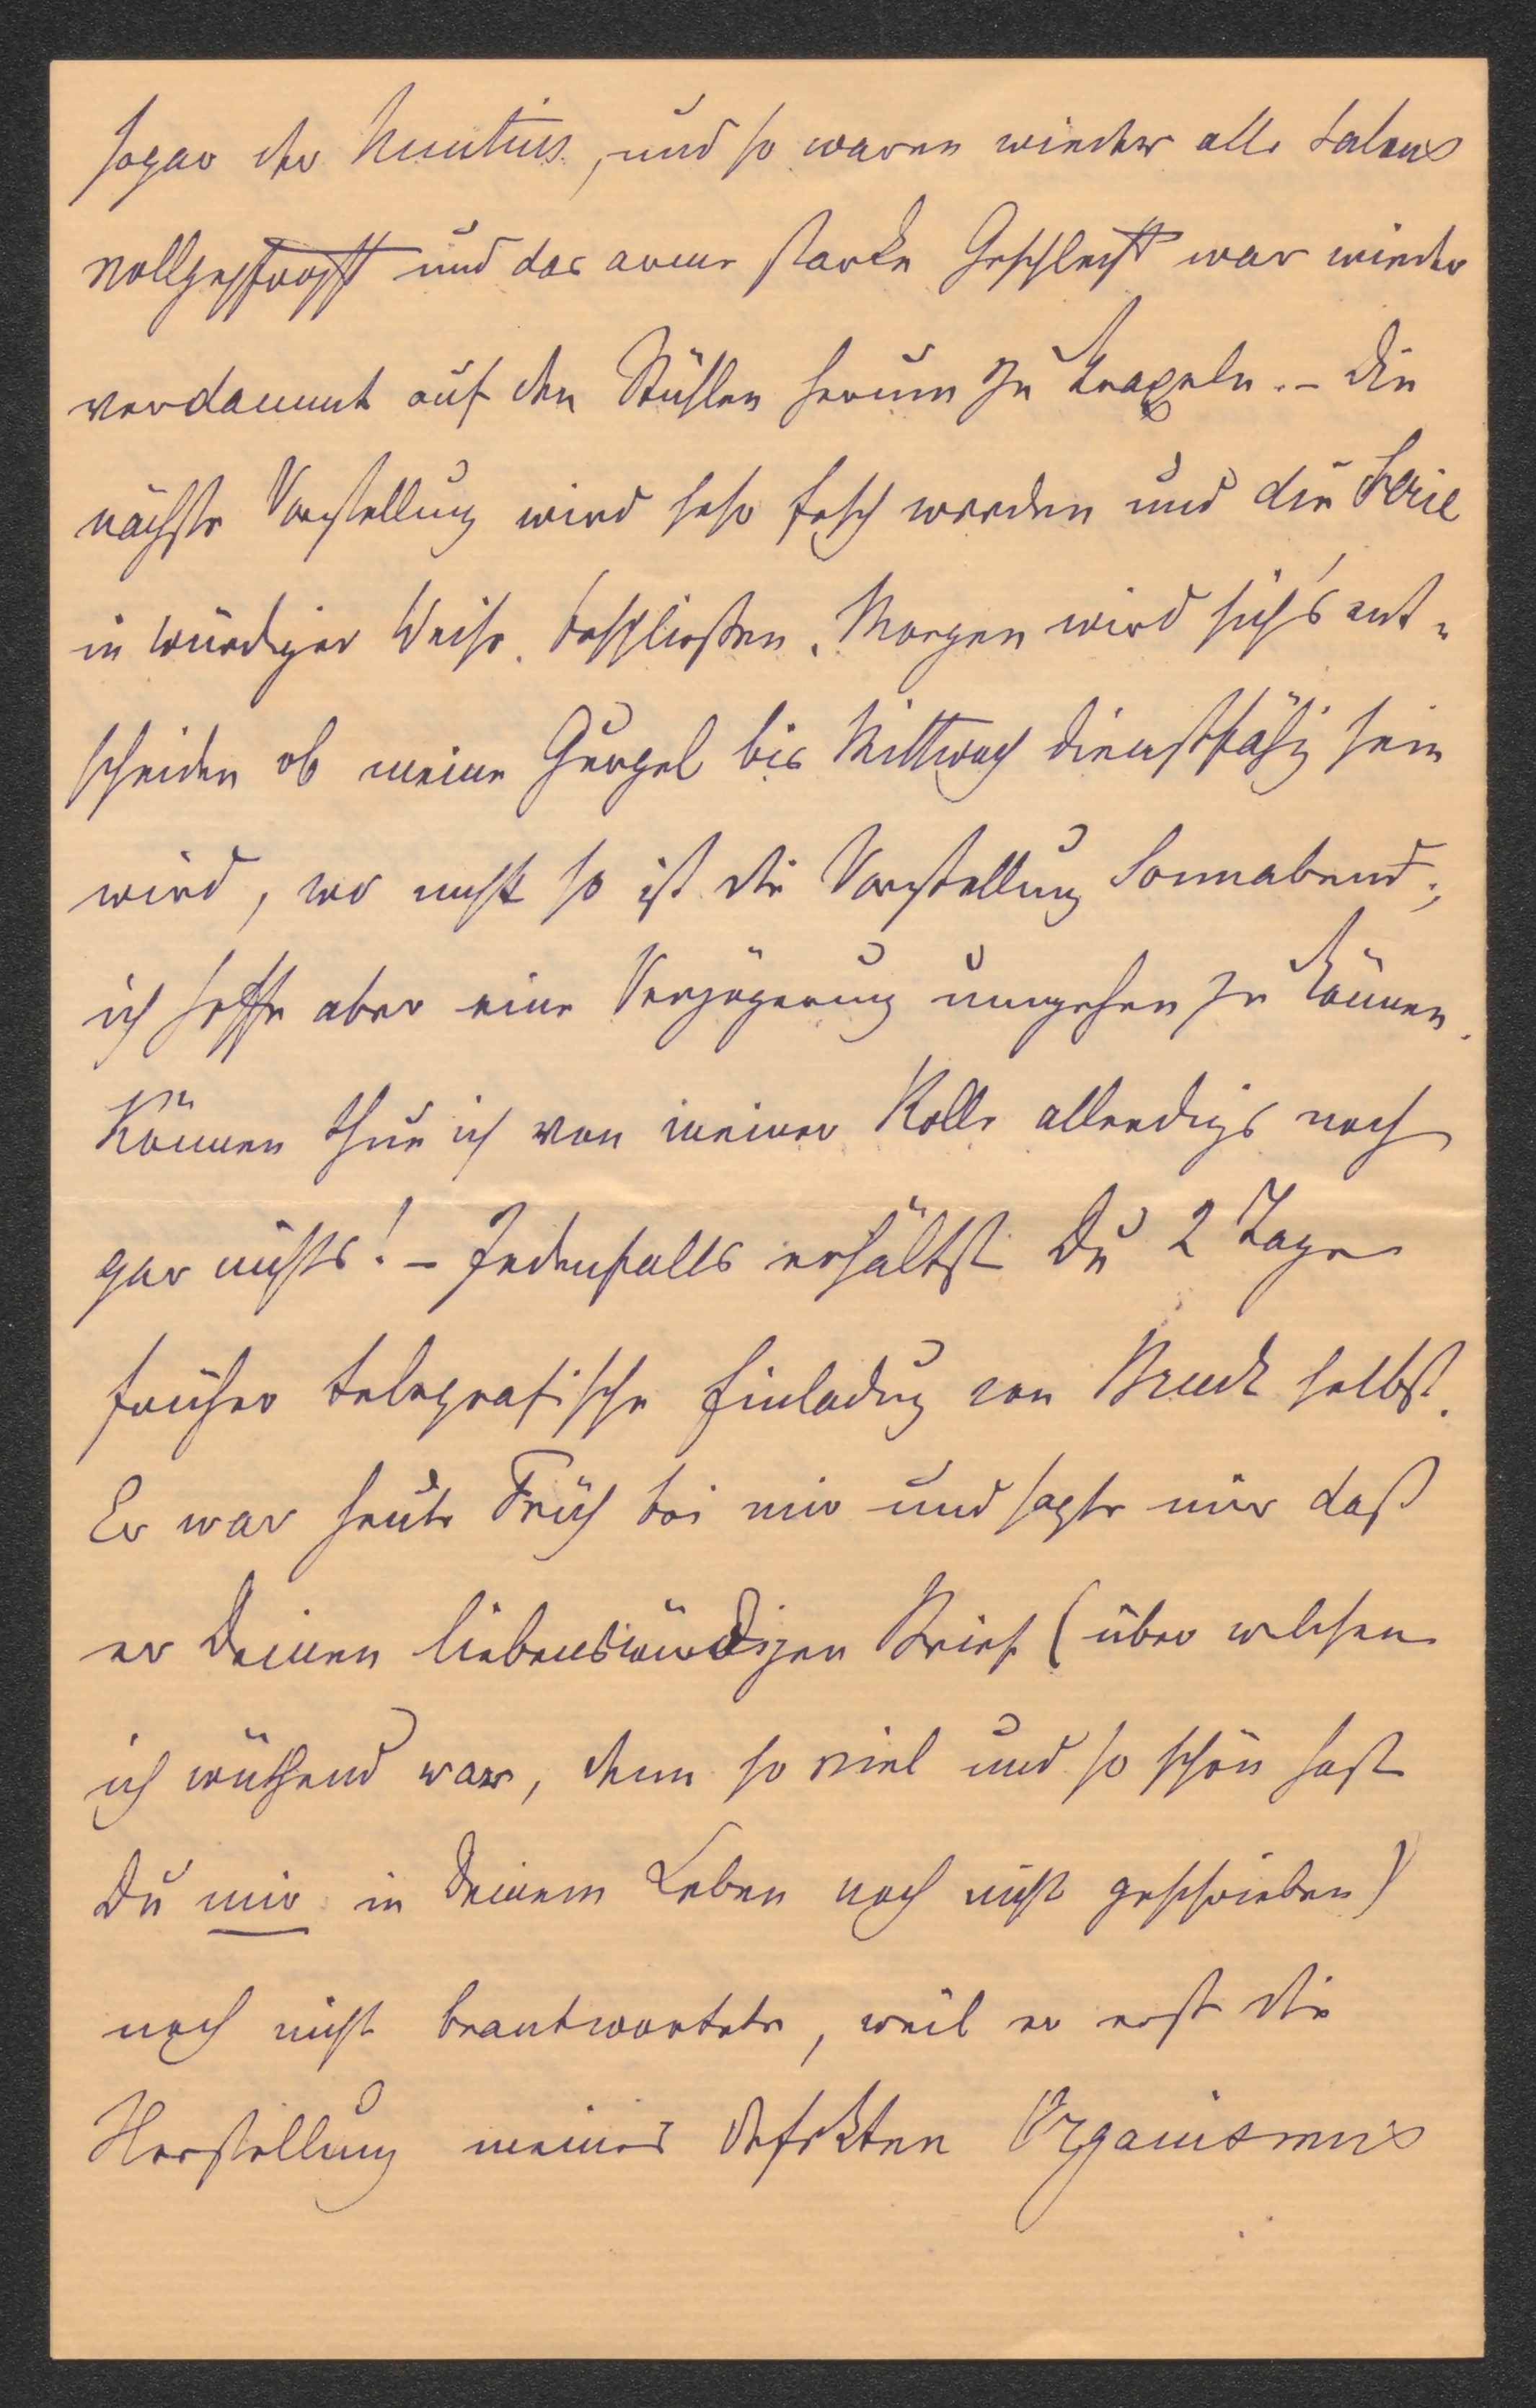 sogar der Nuntius, und so waren wieder alle Salons
vollgepfropft und das arme starke Geschlecht war wieder
verdammt auf den Stühlen herum zu kraxeln. – Die
nächste Vorstellung wird sehr fesch werden und die Serie
in würdiger Weise beschließen. Morgen wird sich's ent-
scheiden ob meine Gurgel bis Mittwoch dienstfähig sein
wird, wo nicht so ist die Vorstellung Sonnabend;
ich hoffe aber eine Verzögerung umgehen zu können.
Können thue ich von meiner Rolle allerdigs noch
gar nichts! – Jedenfalls erhältst Du 2 Tage
früher telegrafische Einladug von Bruck selbst.
Er war heute Früh bei mir und sagte mir daß
er Deinen liebenswürdigen Brief (über welchen
ich wüthend war, denn so viel und so schön hast
Du mir in Deinem Leben noch nicht geschrieben)
noch nicht beantwortete, weil er erst die
Herstellung meines defekten Organismus